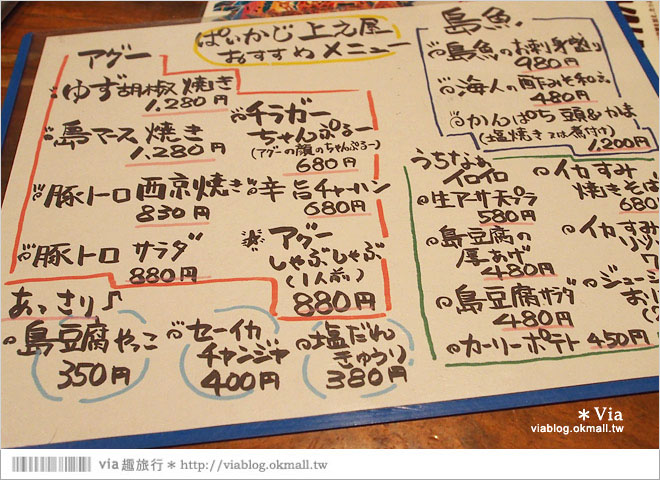 ぱいかじ上之屋
おすすめメニュー
アグー
ゆず胡椒焼き
1,280円
島マース焼き
1,280円
豚トロ 西京焼き
830円
豚トロ サラダ
880円
チラガー
ちゃんぷるー
(アグーの顔のちゃんぷるー)
680円
辛旨チャーハン
680円
アグー
しゃぶしゃぶ
(1人前)
880円
あっさり♪
島豆腐やっこ
350円
セーイカ
チャンジャ
400円
塩だれ
きゅうり
380円
島魚
島魚のお刺身盛り
980円
海人の酢みそ和え
480円
かんぱち頭&かま
(塩焼き又は煮付け)
1,200円
うちなぁ
イロイロ
生アーサ天プラ
580円
島豆腐の
厚あげ
480円
島豆腐サラダ
480円
カーリーポテト 450円
イカすみ
焼きそば
680
イカすみ
リゾ
7
ジューシ
おに
*Via
viablog.okmall.tw
via趣旅行* http://viablog.okmall.tw